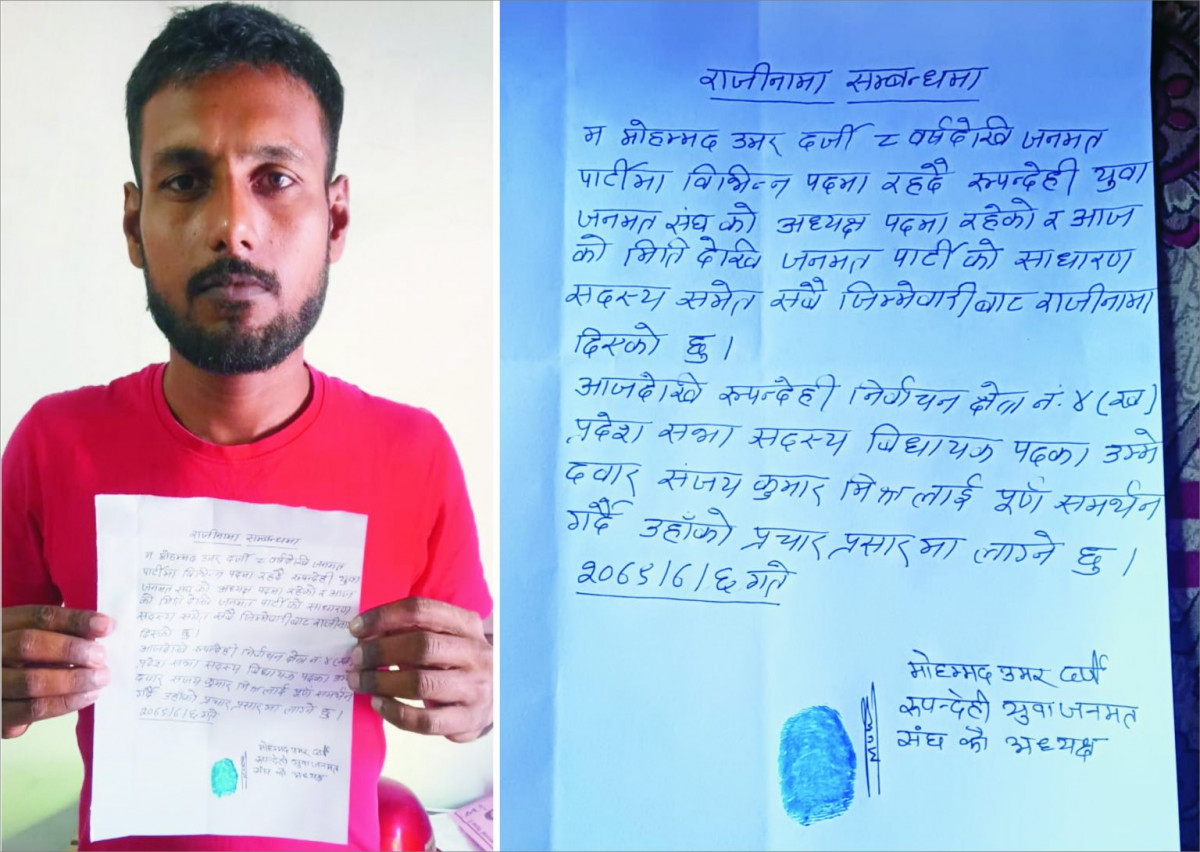 राजीनामा सम्बन्धमा
म मोहम्मद उमर दर्जी ८ वर्षदेखि जनमत
पार्टीमा विभिन्न पदमा रहदै रुपन्देही युवा
जनमत संघ को अध्यक्ष पदमा रहेको र आज
को मिति देखि जनमत पार्टी को साधारण
सदस्य समेत सबै जिम्मेवारीबाट राजीनामा
दिएको छु ।
आजदेखि रुपन्देही निर्वाचन क्षेत्र नं. ४ (ख)
प्रदेश सभा सदस्य बिधायक पदका उम्मे
दवार संजय कुमार मिश्र लाई पूर्ण समर्थन
गर्दै उहाँको प्रचार प्रसार मा लाग्ने छु ।
गते
मोहम्मद उमर दर्जी
रुपन्देही युवा जनमत
संघ को अध्यक्ष